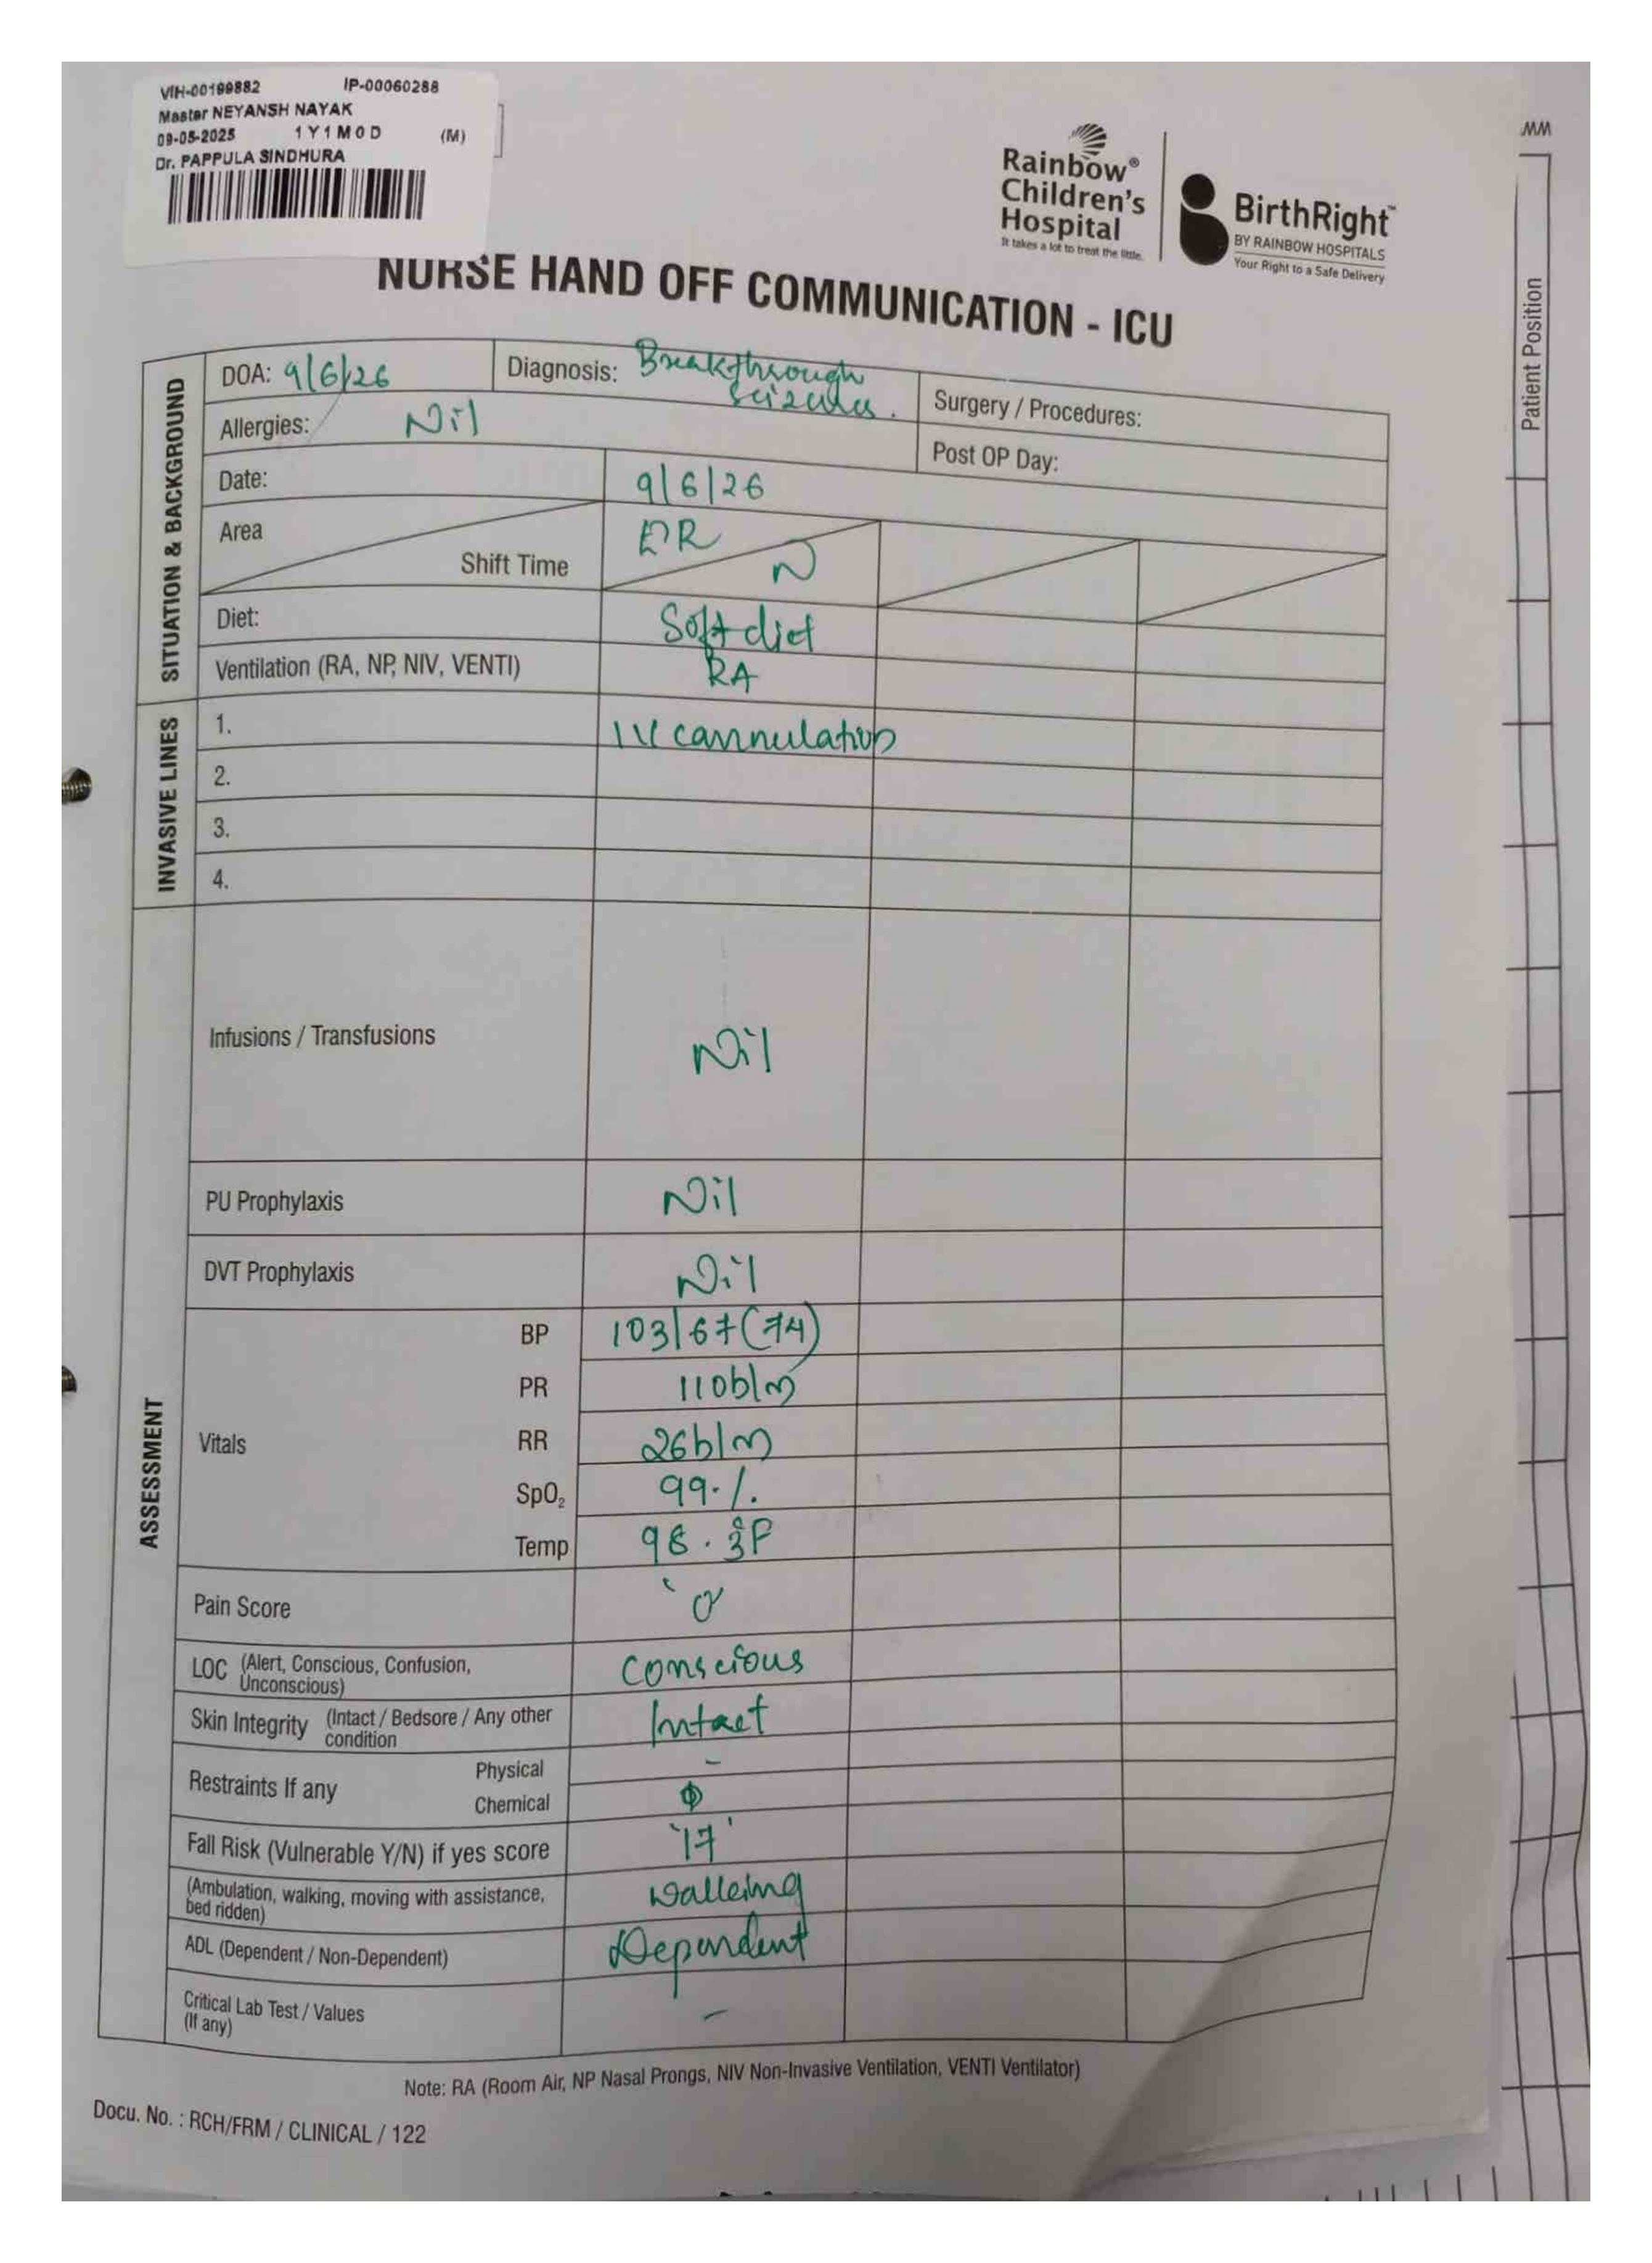 VIH-00199882 IP-00060288
Master NEYANSH NAYAK
09-05-2025 1Y1M0D (M)
Dr. PAPPULA SINDHURA
Rainbow® Children's Hospital
It takes a lot to treat the little.
BirthRight™
BY RAINBOW HOSPITALS
Your Right to a Safe Delivery
MM
Patient Position
NURSE HAND OFF COMMUNICATION - ICU
SITUATION & BACKGROUND
DOA: 9/6/26 Diagnosis: Breakthrough seizures. Surgery / Procedures:
Allergies: Nil Post OP Day:
Date: 9/6/26
Area ER
Shift Time N
Diet: Soft diet
Ventilation (RA, NP, NIV, VENTI) RA
INVASIVE LINES
1. IV cannulation
2.
3.
4.
ASSESSMENT
Infusions / Transfusions Nil
PU Prophylaxis Nil
DVT Prophylaxis Nil
Vitals
BP 103/67(74)
PR 110b/m
RR 26b/m
SpO₂ 99%
Temp 98.3°F
Pain Score '0'
LOC (Alert, Conscious, Confusion, Unconscious) Conscious
Skin Integrity (Intact / Bedsore / Any other condition Intact
Restraints If any
Physical -
Chemical
Fall Risk (Vulnerable Y/N) if yes score '17'
(Ambulation, walking, moving with assistance, bed ridden) walking
ADL (Dependent / Non-Dependent) Dependent
Critical Lab Test / Values (If any) -
Note: RA (Room Air, NP Nasal Prongs, NIV Non-Invasive Ventilation, VENTI Ventilator)
Docu. No. : RCH/FRM / CLINICAL / 122